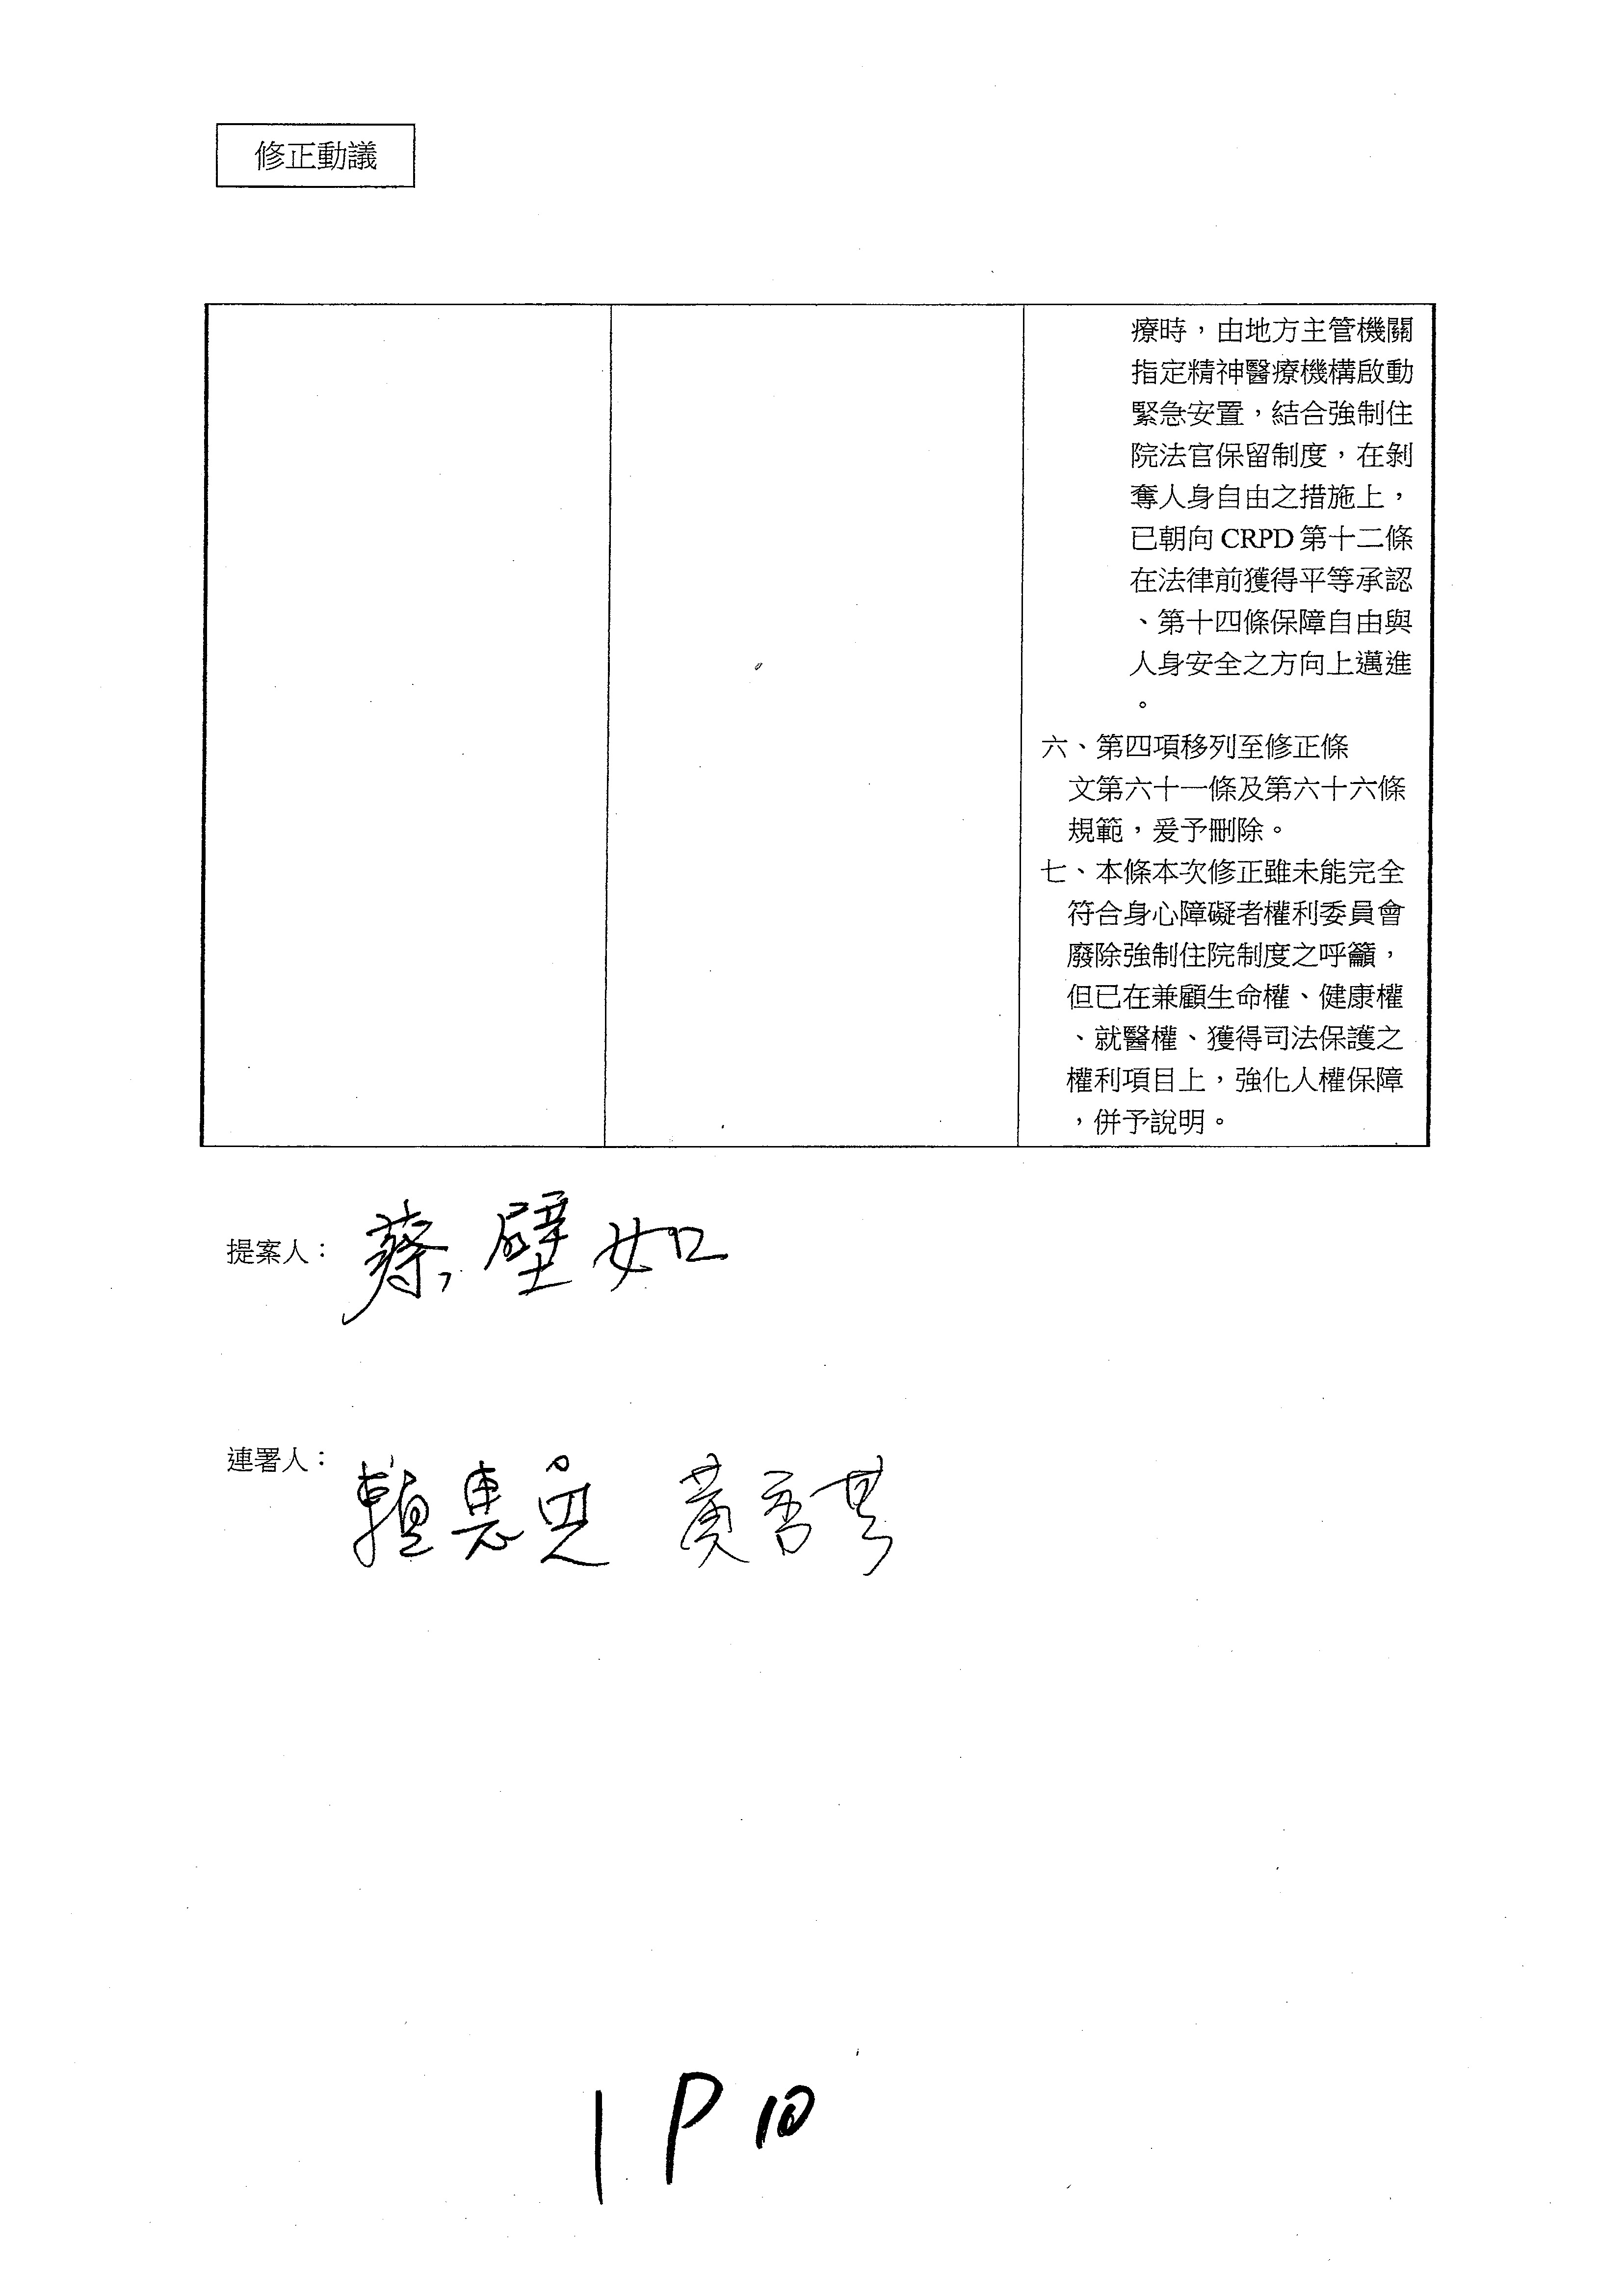 修正動議
療時，由地方主管機關
指定精神醫療機構啟動
緊急安置，結合強制住
院法官保留制度，在剝
奪人身自由之措施上，
已朝向CRPD第十二條
在法律前獲得平等承認
、第十四條保障自由與
人身安全之方向上邁進
。
六、第四項移列至修正條
文第六十一條及第六十六條
規範，爰予刪除。
七、本條本次修正雖未能完全
符合身心障礙者權利委員會
廢除強制住院制度之呼籲，
但已在兼顧生命權、健康權
、就醫權、獲得司法保護之
權利項目上，強化人權保障
，併予說明。
提案人：蔡壁如
連署人：賴惠員 黃秀芳
1 P10